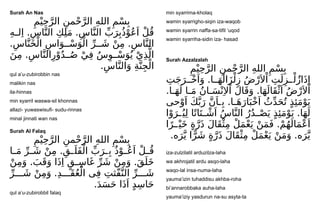 Surah An Nas
بِسْمِ اللهِ الرَّحْمنِ الرَّحِيْمِ
قُلْ أَعُوْذُبِرَبِّ النَّاسِ. مَلِكِ النَّاسِ. إِلـهِ
النَّاسِ. مِنْ شَرِّ الْوَسْوَاسِ الْخَنَّاسِ.
الَّذِيْ يُوَسْوِسُ فِيْ صُدُوْرِالنَّاسِ. مِنَ
الْجِنَّةِ وَالنَّاسِ.
qul a'u-zubirobbin nas
malikin nas
ila-hinnas
min syarril waswa-sil khonnas
allazi- yuwaswisufi- sudu-rinnas
minal jinnati wan nas
Surah Al Falaq
بِسْمِ اللهِ الرَّحْمنِ الرَّحِيْمِ
قُلْ أَعُوْذُ بِرَبِّ الْفَلَقِ. مِنْ شَرِّ مَا
خَلَقَ. وَمِنْ شَرِّ غَاسِقٍ إِذَا وَقَبَ. وَمِنْ
شَرِّ النَّفّثتِ فِى الْعُقَدِ. وَمِنْ شَرِّ
حَاسِدٍ اِذَا حَسَدَ.
qul a'u-zubirobbil falaq
min syarrima-kholaq
wamin syarrigho-siqin iza-waqob
wamin syarrin naffa-sa-tifil 'uqod
wamin syarriha-sidin iza- hasad
Surah Azzalzalah
بِسْمِ اللهِ الرَّحْمنِ الرَّحِيْمِ
إِذَازُلْزِلَتِ الْأَرْضُ زِلْزَالَهَا. وَأَخْرَجَتِ
الْأَرْضُ أَثْقَالَهَا. وَقَالَ الْإِنْسَانُ مَا لَهَا.
يَوْمَئِذٍ تُحَدِّثُ أَخْبَارَهَا. بِأَنَّ رَبَّكَ أَوْحى
لَهَا. يَوْمَئِذٍ يَصْدُرُ النَّاسُ أَشْتَاتًا لِيُرَوْا
أَعْمَالَهُمْ. فَمَنْ يَعْمَلْ مِثْقَالَ ذَرَّةٍ خَيْرًا
يَّرَه. وَمَنْ يَعْمَلْ مِثْقَالَ ذَرَّةٍ شَرًّا يَّرَه.
iza-zulzilatil arduzilza-laha
wa akhrojatil ardu asqo-laha
waqo-lal insa-numa-laha
yauma'izin tuhaddisu akhba-roha
bi'annarobbaka auha-laha
yauma'iziy yasdurun na-su asyta-ta